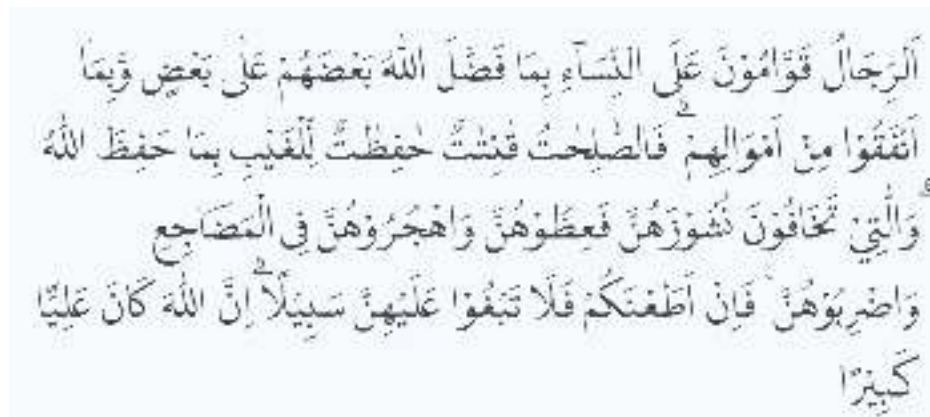 اَلرِّجَالُ قَوَّامُوْنَ عَلَى النِّسَآءِ بِمَا فَضَّلَ اللّٰهُ بَعْضَهُمْ عَلٰى بَعْضٍ وَّبِمَآ
اَنْفَقُوْا مِنْ اَمْوَالِهِمْ ۗ فَالصّٰلِحٰتُ قٰنِتٰتٌ حٰفِظٰتٌ لِّلْغَيْبِ بِمَا حَفِظَ اللّٰهُ ۗ
وَالّٰتِيْ تَخَافُوْنَ نُشُوْزَهُنَّ فَعِظُوْهُنَّ وَاهْجُرُوْهُنَّ فِى الْمَضَاجِعِ
وَاضْرِبُوْهُنَّ ۚ فَاِنْ اَطَعْنَكُمْ فَلَا تَبْغُوْا عَلَيْهِنَّ سَبِيْلًا ۗ اِنَّ اللّٰهَ كَانَ عَلِيًّا
كَبِيْرًا